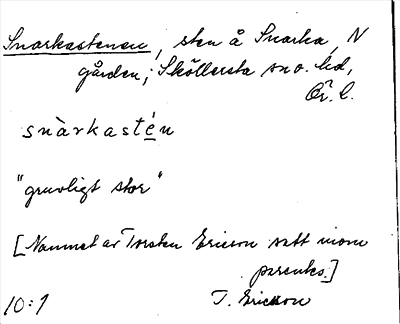 Snarkastenen, sten å Snarka, N
gården, i Sköllersta sn o. hd,
Ör. l.
snàrkastén
"gruvligt stor"
[Namnet av Torsten Ericson satt inom
parentes.]
10:1 T. Ericson